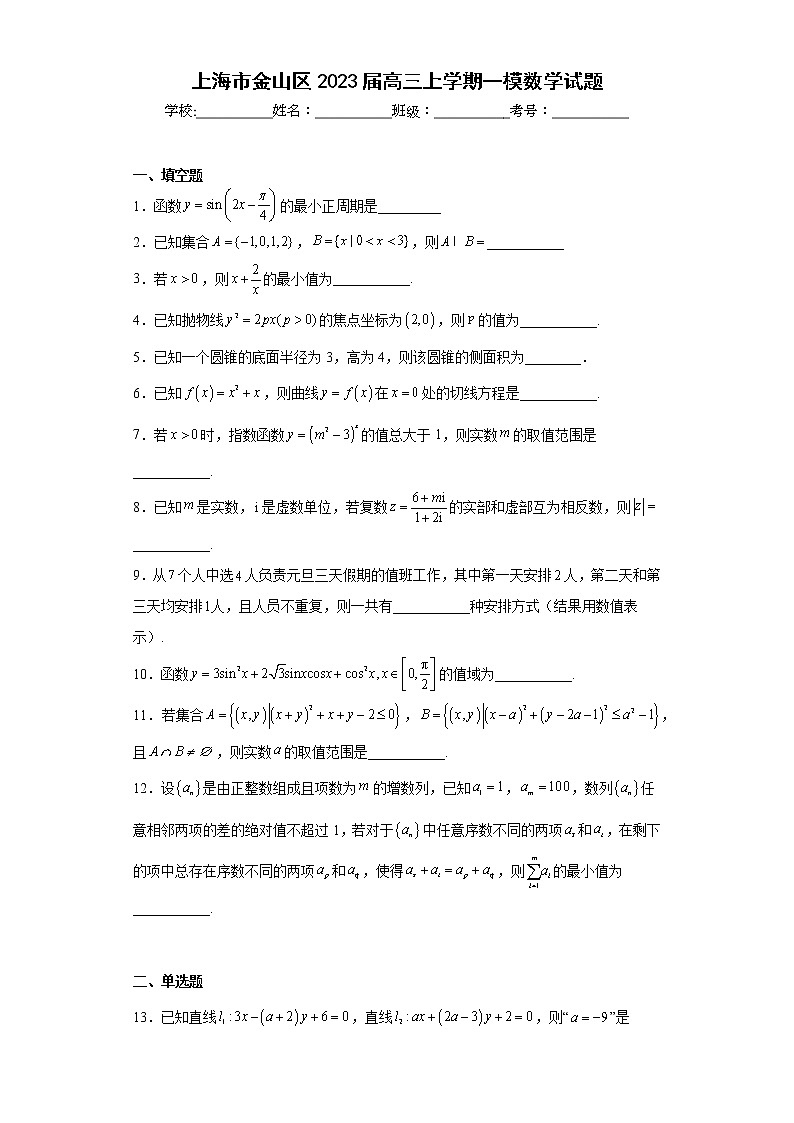 上海市金山区 2023 届高三上学期一模数学试题
学校:___________姓名：___________班级：___________考号：___________
一、填空题
1．函数 y = sin(2x − π/4) 的最小正周期是_________
2．已知集合 A = {−1,0,1,2} ，B = {x | 0 < x < 3} ，则 A I B = ___________
3．若 x > 0 ，则 x + 2/x 的最小值为___________.
4．已知抛物线 y² = 2px( p > 0) 的焦点坐标为 (2,0) ，则 P 的值为___________.
5．已知一个圆锥的底面半径为 3，高为 4，则该圆锥的侧面积为________．
6．已知 f(x) = x² + x ，则曲线 y = f(x) 在 x = 0 处的切线方程是___________.
7．若 x > 0 时，指数函数 y = (m² − 3)ˣ 的值总大于 1，则实数 m 的取值范围是
___________.
8．已知 m 是实数，i 是虚数单位，若复数 z = (6 + mi)/(1 + 2i) 的实部和虚部互为相反数，则 |z| =
___________.
9．从 7 个人中选 4 人负责元旦三天假期的值班工作，其中第一天安排 2 人，第二天和第
三天均安排 1人，且人员不重复，则一共有___________种安排方式（结果用数值表
示）.
10．函数 y = 3sin²x + 2√3sinxcosx + cos²x, x ∈ [0, π/2] 的值域为___________.
11．若集合 A = {(x, y) | (x + y)² + x + y − 2 ≤ 0} ，B = {(x, y) | (x − a)² + (y − 2a − 1)² ≤ a² − 1} ，
且 A ∩ B ≠ ∅ ，则实数 a 的取值范围是___________.
12．设{aₙ}是由正整数组成且项数为 m 的增数列，已知 a₁ = 1 ，aₘ = 100 ，数列{aₙ}任
意相邻两项的差的绝对值不超过 1，若对于{aₙ}中任意序数不同的两项 aₛ 和 aₜ ，在剩下
的项中总存在序数不同的两项 aₚ 和 a_q ，使得 aₛ + aₜ = aₚ + a_q ，则 ∑ᵢ₌₁ᵐ aᵢ 的最小值为
___________.
二、单选题
13．已知直线 l₁ : 3x − (a + 2)y + 6 = 0 ，直线 l₂ : ax + (2a − 3)y + 2 = 0 ，则“ a = −9 ”是